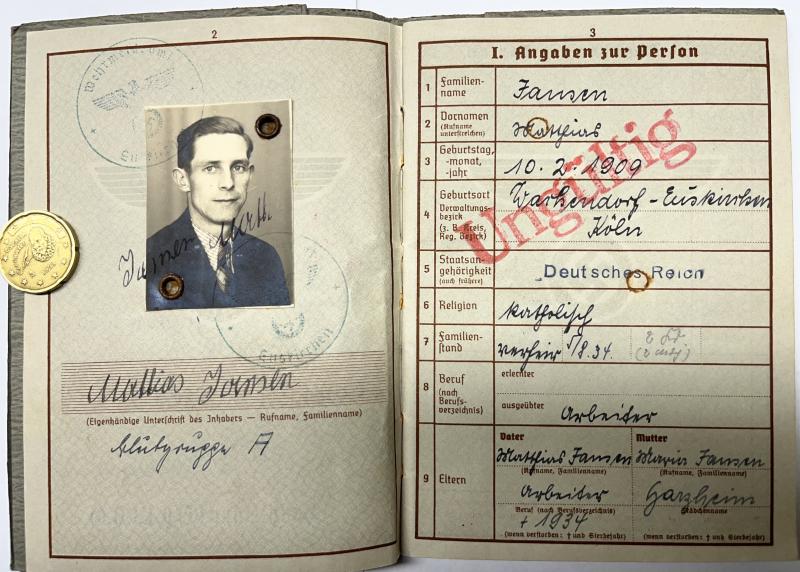 2
Wehrmeldeamt
Euskirchen
Jansen Math.
Euskirchen
Mattias Jansen
(Eigenhändige Unterschrift des Inhabers — Rufname, Familienname)
Blutgruppe A
3
I. Angaben zur Person
1 Familienname Jansen
2 Vornamen (Rufname unterstreichen) Matthias
3 Geburtstag, -monat, -jahr 10.2.1909
Ungültig
4 Geburtsort Verwaltungsbezirk (z. B. Kreis, Reg. Bezirk) Wachendorf - Euskirchen
Köln
5 Staatsangehörigkeit (auch frühere) Deutsches Reich
6 Religion katholisch
7 Familienstand verheir 8.34.
8 Beruf (nach Berufsverzeichnis) erlernter
ausgeübter Arbeiter
9 Eltern
Vater Mutter
Matthias Jansen Maria Jansen
(Rufname, Familienname) (Rufname, Familienname)
Arbeiter Harzheim
Beruf (nach Berufsverzeichnis) Mädchenname
† 1934
(wenn verstorben: † und Sterbejahr) (wenn verstorben: † und Sterbejahr)